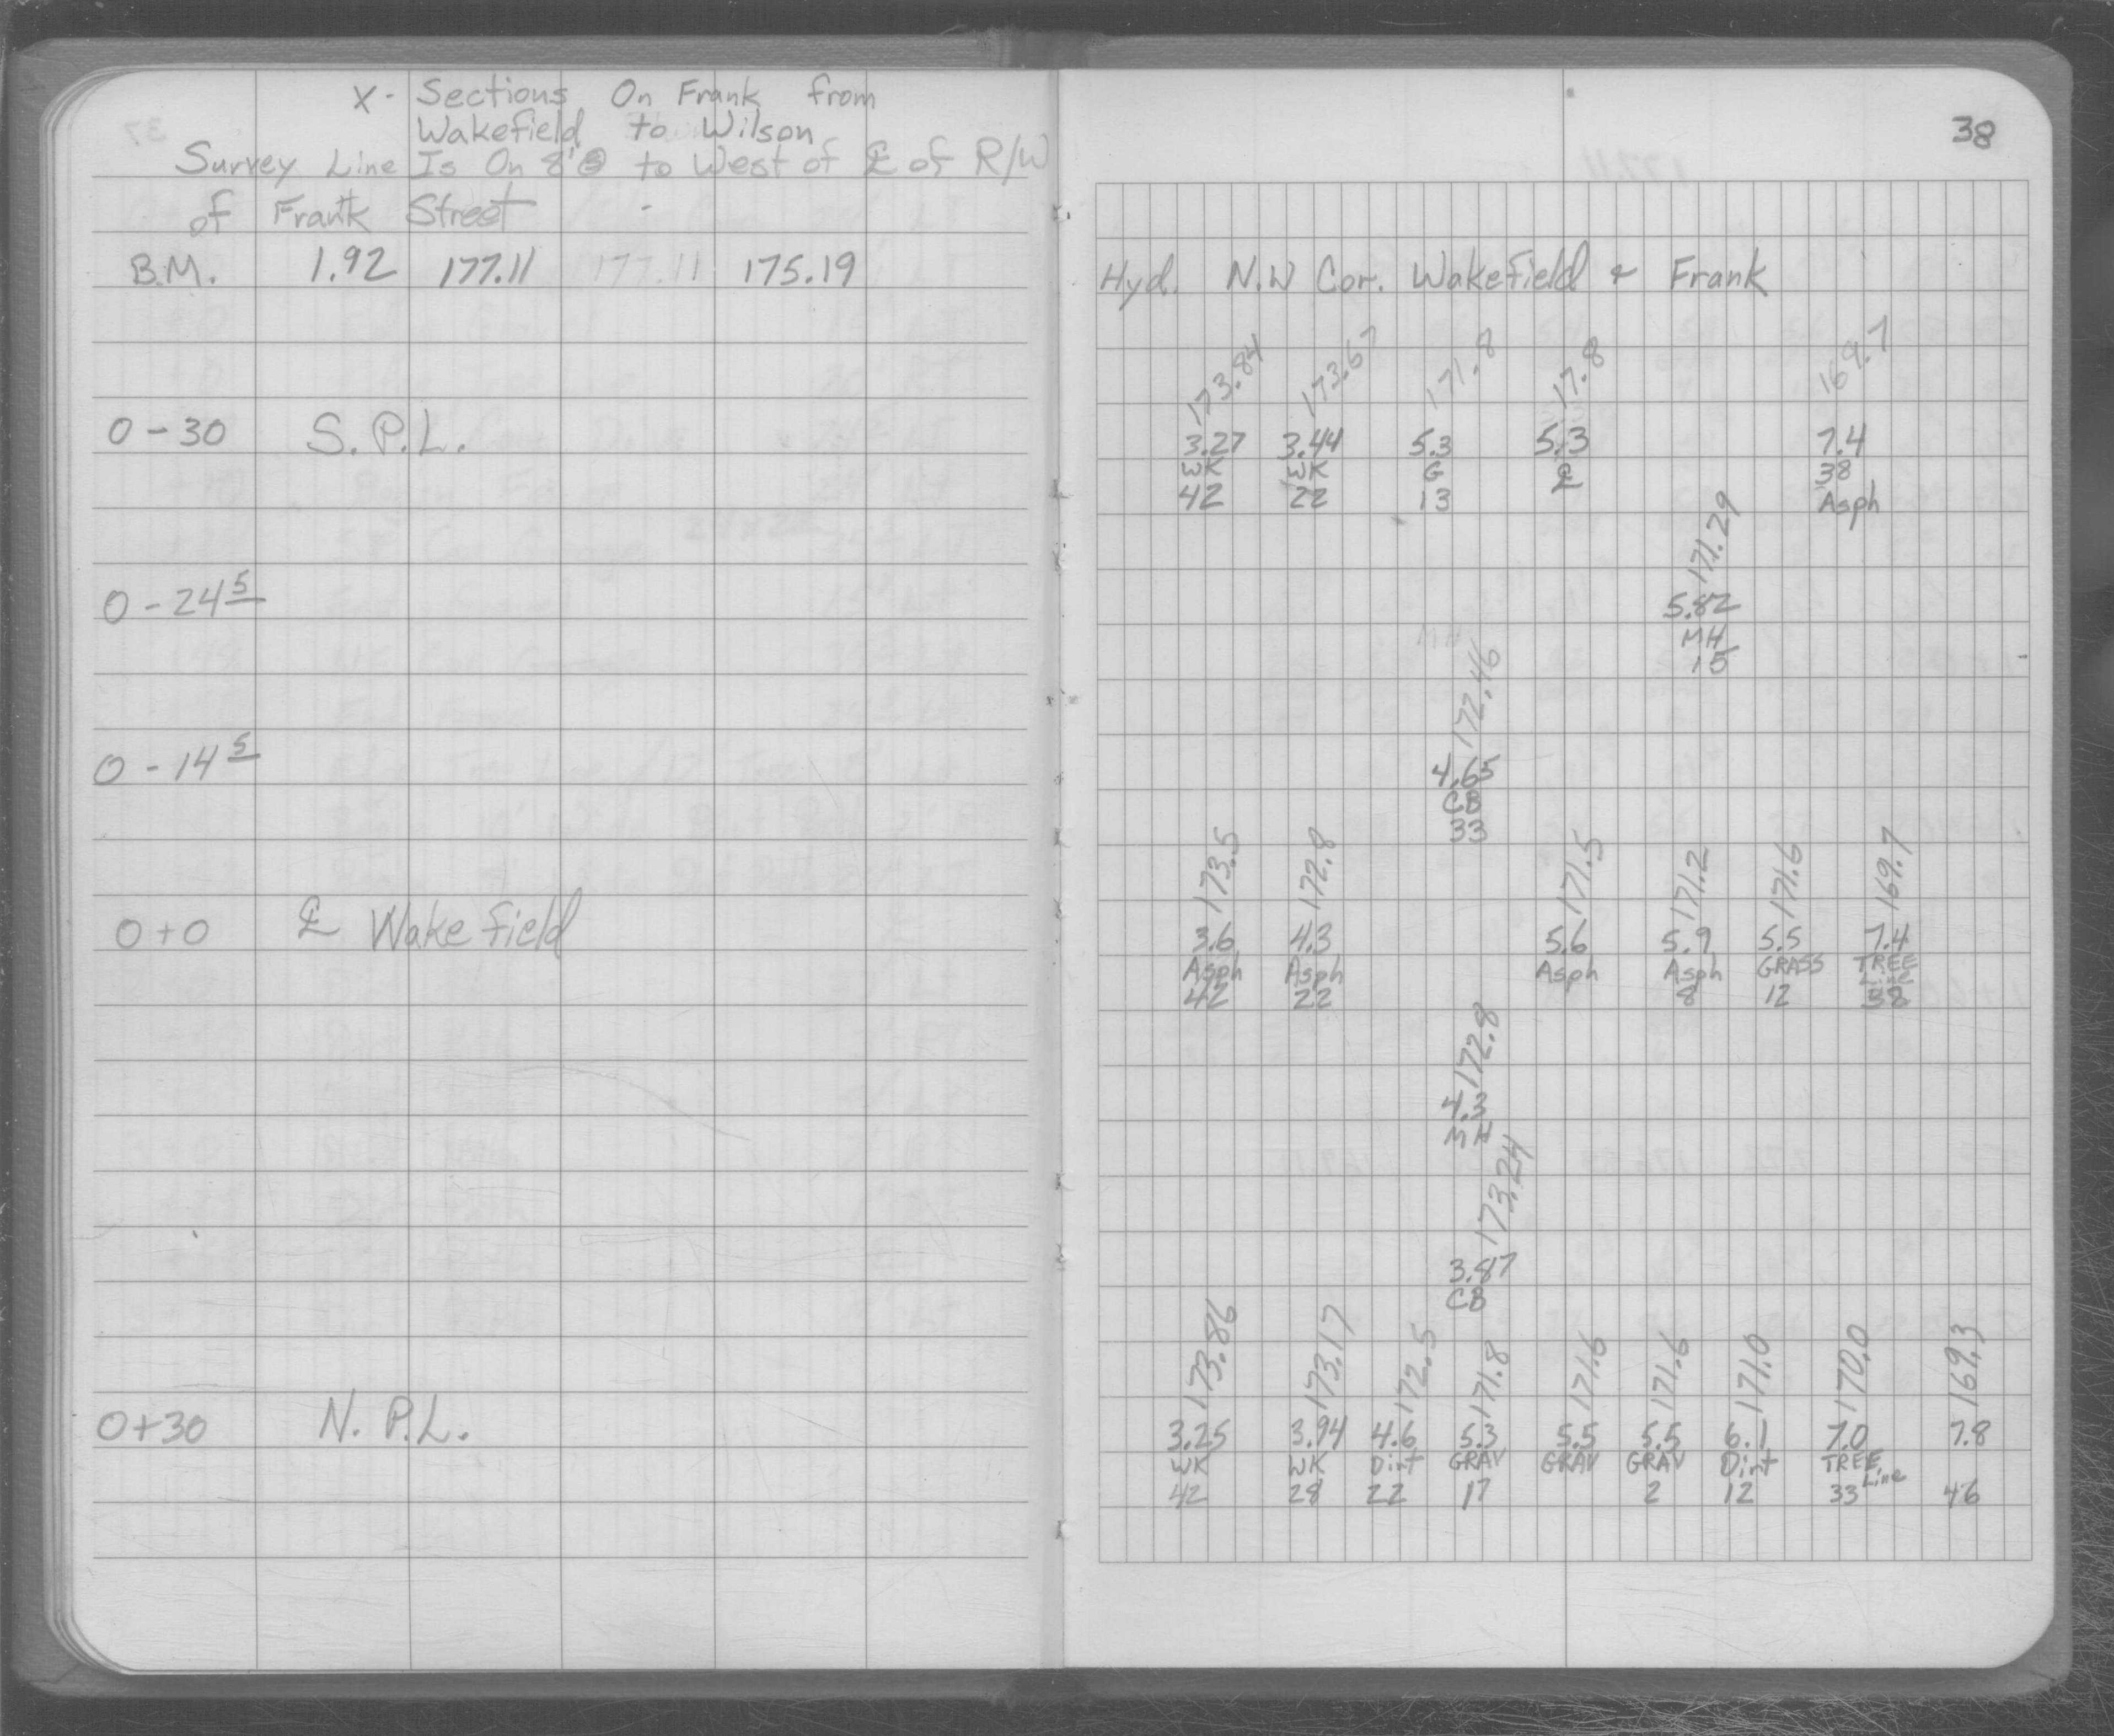 X- Sections On Frank from
Wakefield to Wilson
Survey Line Is On 8' to West of ℄ of R/W
of Frank Street
B.M. 1.92 177.11 177.11 175.19
0-30 S.P.L.
0-24 5
0-14 5
0+0 ℄ Wakefield
0+30 N.P.L.
38
Hyd. N.W Cor. Wakefield & Frank
173.84 173.67 171.8 17.8 169.7
3.27 3.44 5.3 5.3 7.4
WK WK G ℄ 38
42 22 13 Asph
171.29
5.82
MH
15
MH
172.46
4.65
CB
33
173.5 172.8 171.5 171.2 171.6 169.7
3.6 4.3 5.6 5.9 5.5 7.4
Asph Asph Asph Asph GRASS TREE
Line
42 22 8 12 38
172.8
4.3
MH
173.24
3.87
CB
173.86 173.17 172.5 171.8 171.6 171.6 171.0 170.0 169.3
3.25 3.94 4.6 5.3 5.5 5.5 6.1 7.0 7.8
WK WK Dirt GRAV GRAV GRAV Dirt TREE Line
42 28 22 17 2 12 33 46